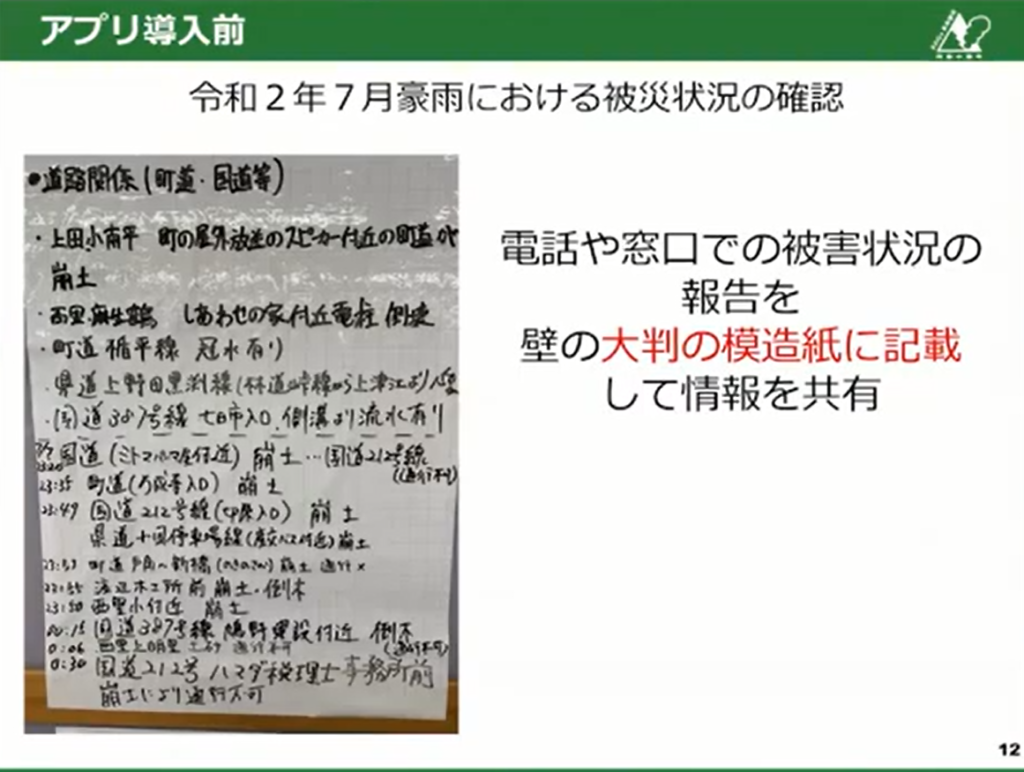 アプリ導入前
令和2年7月豪雨における被災状況の確認
●道路関係(町道・国道等)
・上田小南平 町の屋外放送のスピーカー付近の町道が
崩土
・西里麻生鶴 しあわせの家付近電柱 倒
・町道 楯平線 冠水有り
・県道上野田黒渕線(林道 線から上津江より
・国道387号線 七日市入口、側溝より流水有り
国道 崩土…国道212号線
(通行不可)
23:35 町道(万成寺入口) 崩土
23:49 国道212号線( 入口) 崩土
県道十 停車場線 崩土
23:53 町道 新橋 崩土 通行×
23:55 渡辺木工所前 崩土・倒木
23:50 西里小付近 崩土
00:15 国道387号線 建設付近 倒木
(通行不可)
0:06 西里 通行不可
0:30 国道212号 ハマダ税理士事務所前
崩土により通行不可
電話や窓口での被害状況の
報告を
壁の大判の模造紙に記載
して情報を共有
12